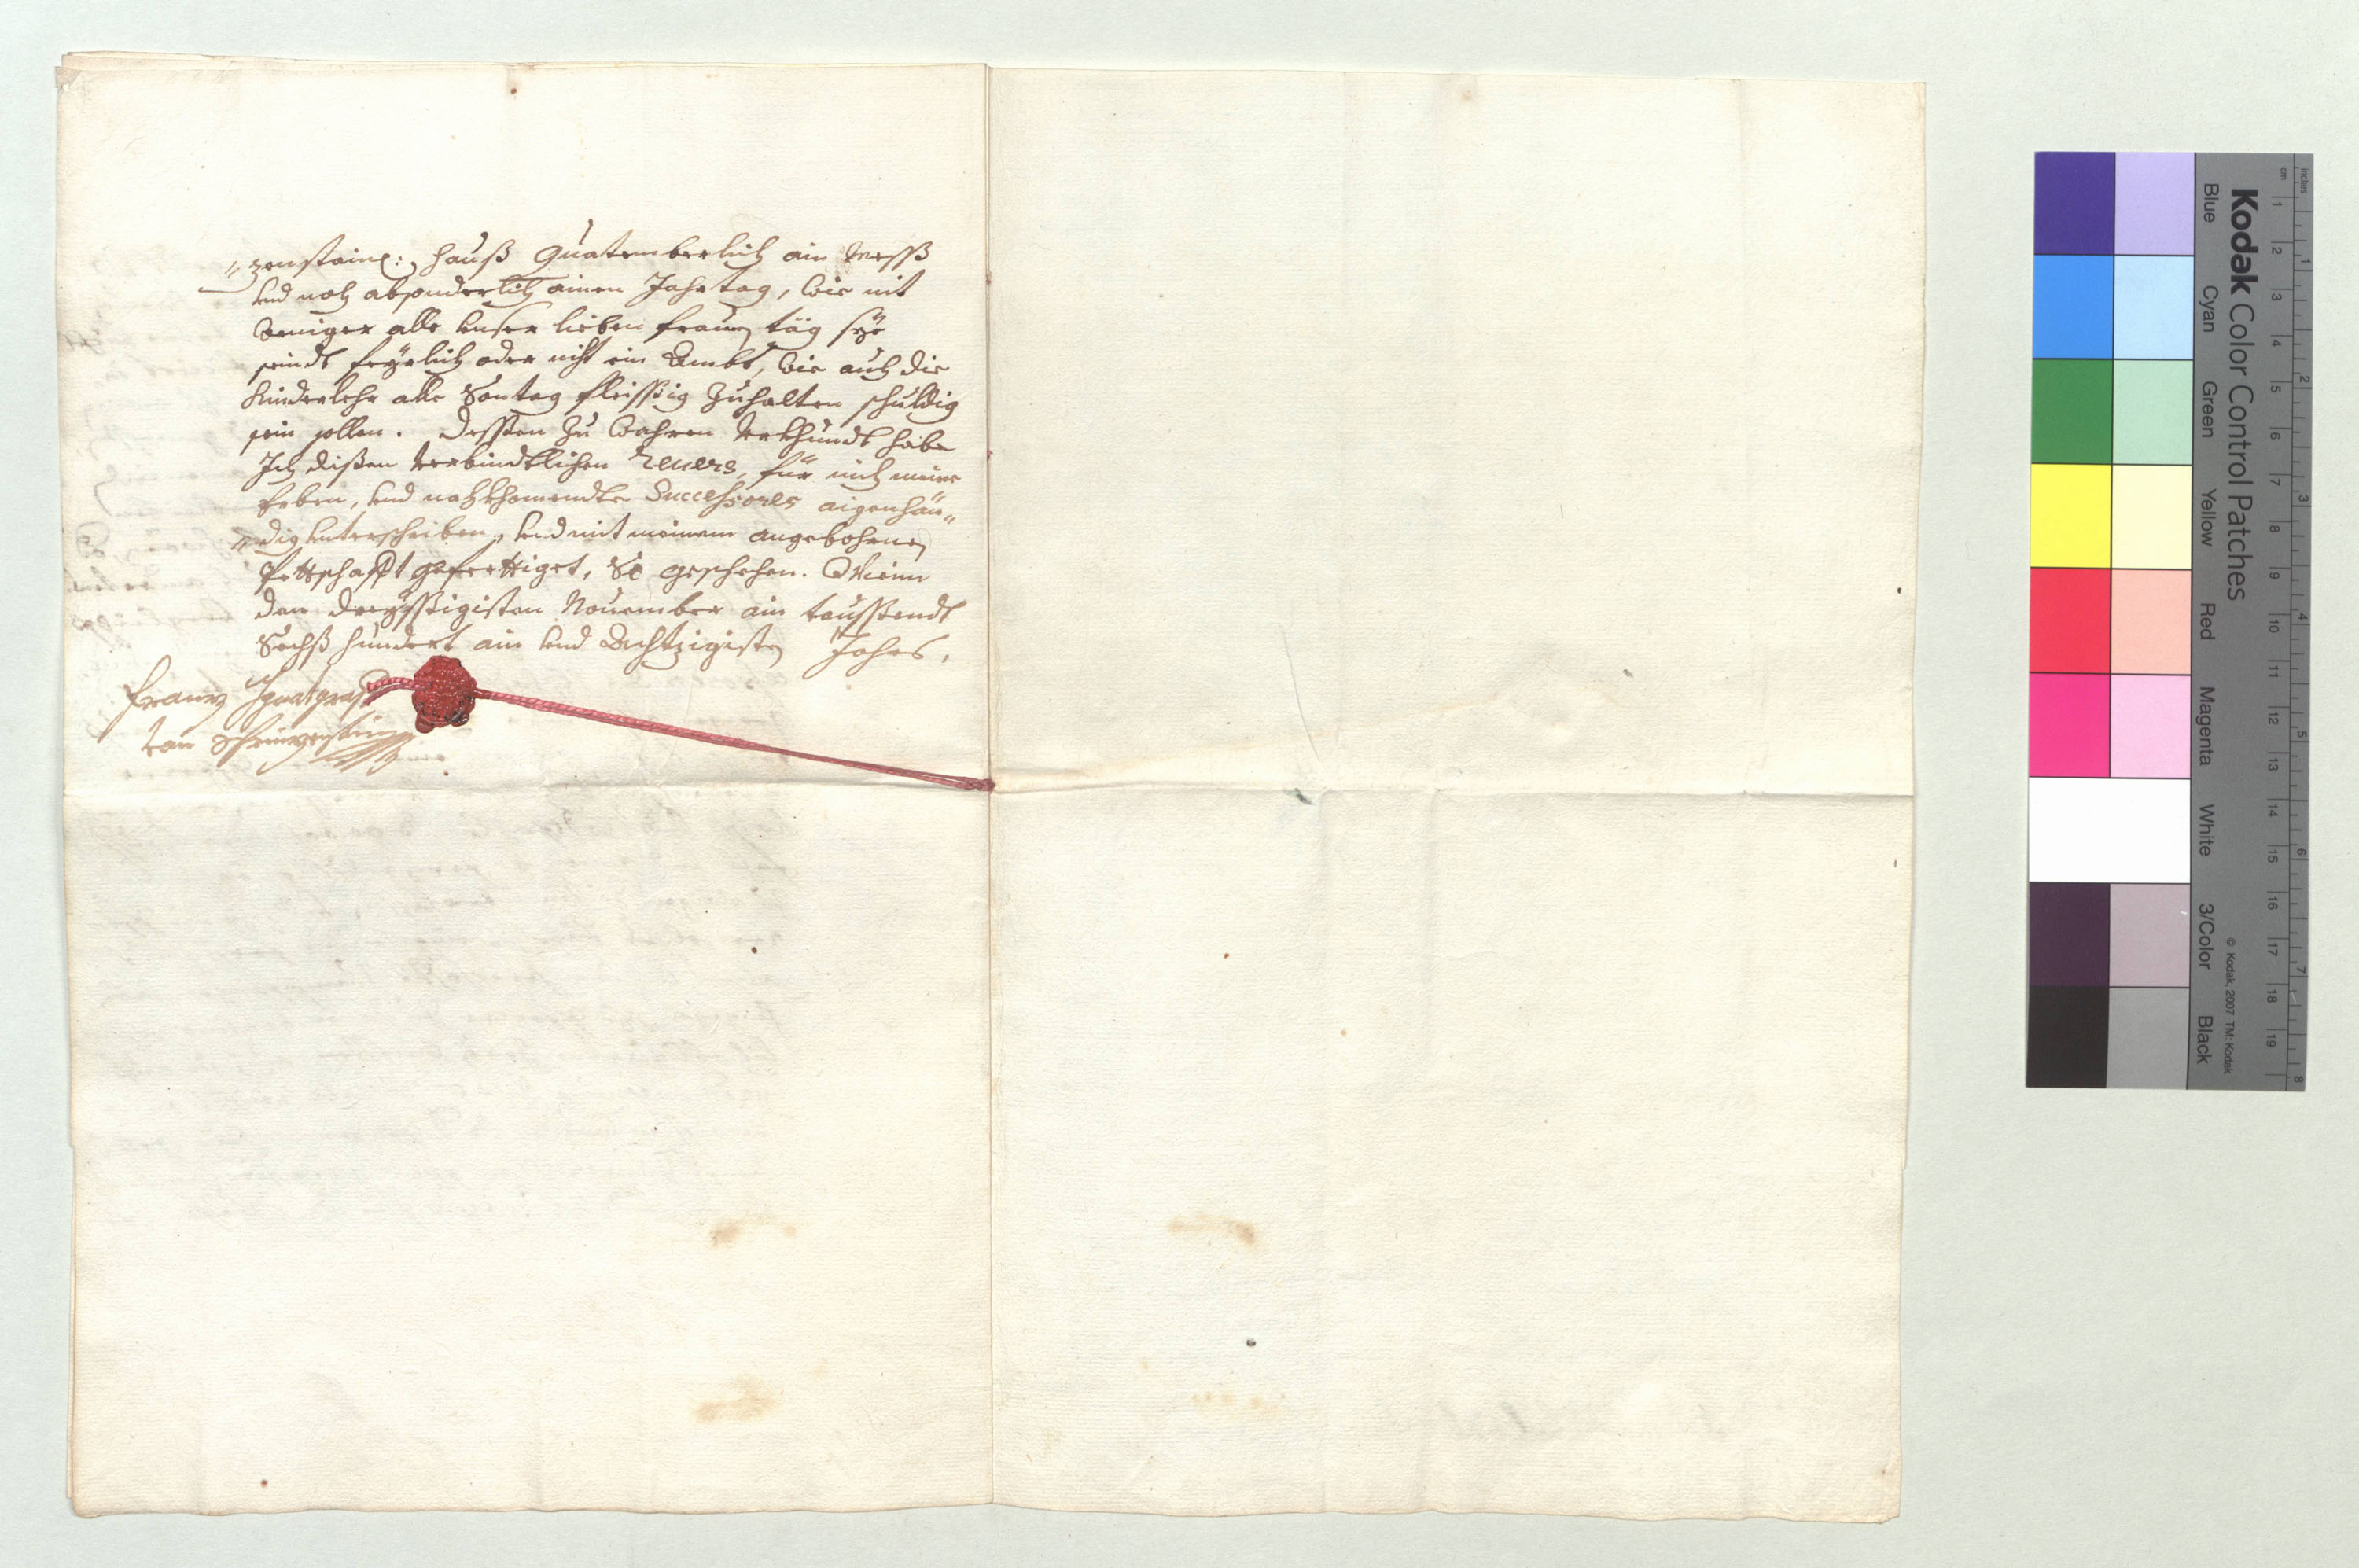 „zenstain: hauß Quatemberlich ain Mess
vnd noch absonderlich ainen Jahrtag, wie nit
weniger alle vnser lieben frauen täg sye
seindt feyrlich oder nicht ein Ambt, wie auch die
Kinderlehr alle Sontag fleissig zuhalten schuldig
sein sollen. Dessen zu wahren Verkhundt habe
Ich disen verbindtlichen Reuers, für mich meine
Erben, vnd nachkhomendte Successores aigenhän„
„dig vnterschriben, vnd mit meinem angebohrnen
Pettschafft gefertiget, So geschehen. Wienn
den dreyssigisten Nouember ain taussendt
Sechß hundert ain vnd Achtzigisten Jahrs,
Franz Ignat graf
von
Kodak Color Control Patches
Blue Cyan Green Yellow Red Magenta White 3/Color Black
© Kodak, 2007 TM: Kodak
inches 1 2 3 4 5 6 7 8
cm 1 2 3 4 5 6 7 8 9 10 11 12 13 14 15 16 17 18 19